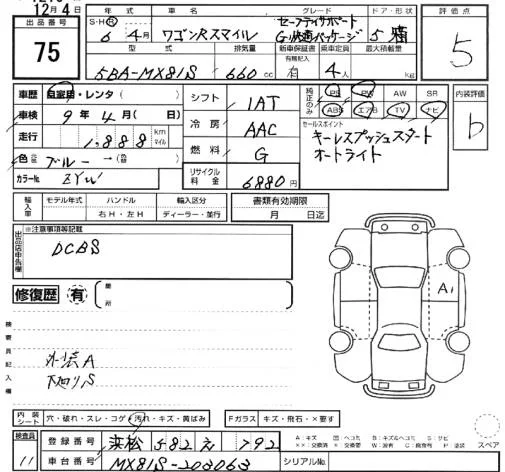 12月4日
出品番号
75
年式 車名 グレード ドア・形状
S・H・R
6年4月 ワゴンRスマイル
セーフティサポート
G・快適パッケージ
5
型式 排気量 新車保証書 乗車定員 最大積載量
有 記録簿 記入
5BA-MX81S 660cc 有 4人 kg
評価点
5
車歴 自家用・レンタ
車検 9年4月(日)
走行 1,888 km マイル
色 元色 ブルー→(色替)
カラーNo. ZYW
シフト 1AT
冷房 AAC
燃料 G
リサイクル料金 6880円
純正のみ
PS PW AW SR
ABS エアB TV ナビ
セールスポイント
キーレスプッシュスタート
オートライト
内装評価
b
輸入車
モデル年式 ハンドル 輸入区分
右H・左H ディーラー・並行
書類有効期限
月 日迄
出品店申告欄
※注意事項等記載
DCBS
修復歴 有 箇所
検査員記入欄
外装A
下廻りS
A1
内装シート
穴・破れ・スレ・コゲ・汚れ・キズ・黄ばみ
Fガラス キズ・飛石・×要す
検査員
11
登録番号 浜松 582 え 792
車台番号 MX81S-203063
シリアルNo.
A:キズ 凹:ヘコミ B:キズ&ヘコミ S:サビ
××:交換済 ×:要交換 W:波有 C:腐食有 P:塗装
スペア